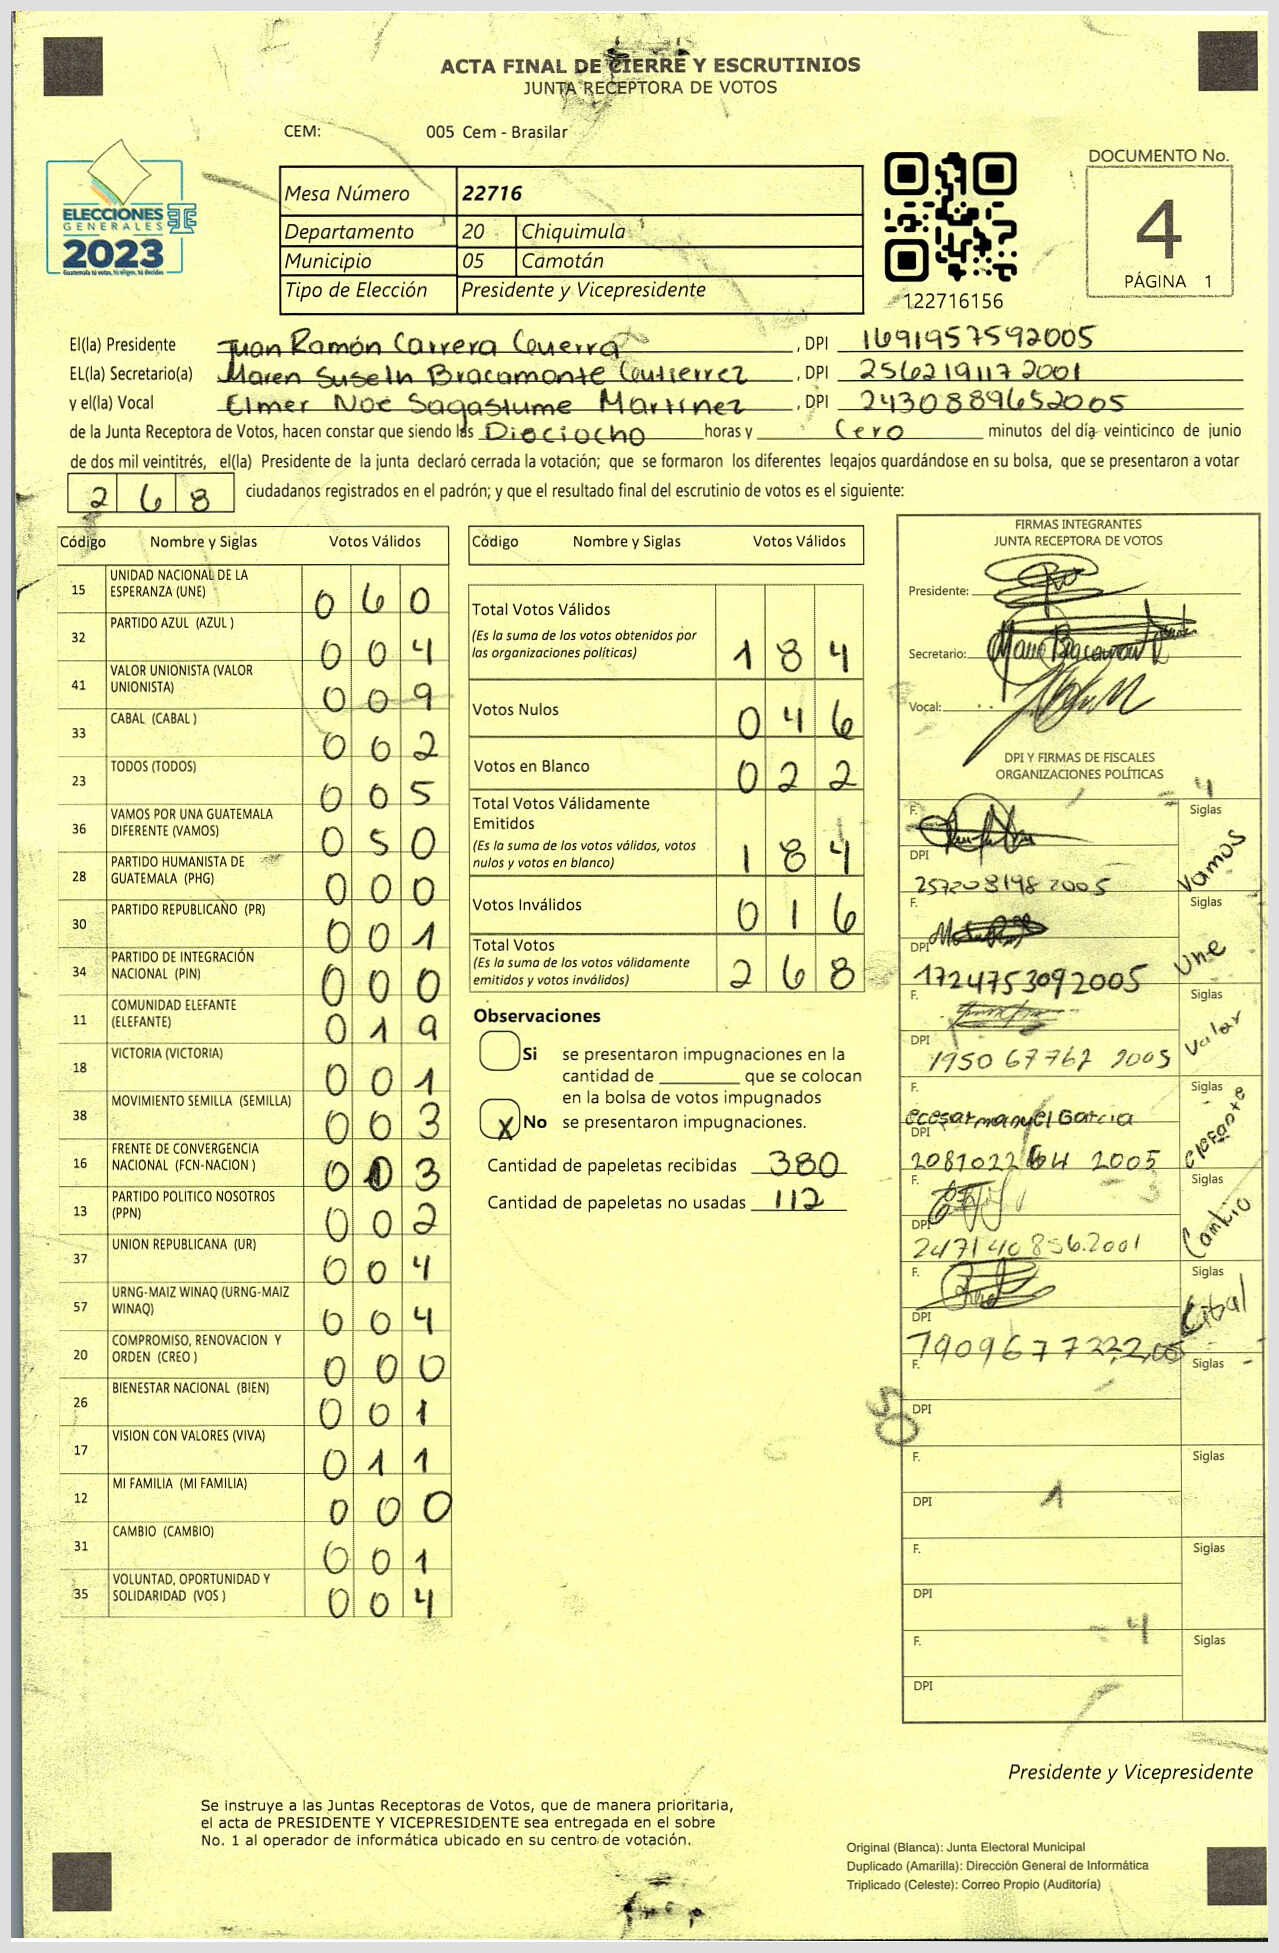 ACTA FINAL DE CIERRE Y ESCRUTINIOS
JUNTA RECEPTORA DE VOTOS
CEM: 005 Cem - Brasilar
ELECCIONES
GENERALES
2023
Guatemala tú votas, tú eliges, tú decides
Mesa Número 22716
Departamento 20 Chiquimula
Municipio 05 Camotán
Tipo de Elección Presidente y Vicepresidente
122716156
DOCUMENTO No.
4
PÁGINA 1
El(la) Presidente Juan Ramón Carrera Guerra, DPI 1691957592005
EL(la) Secretario(a) Maren Suseth Bracamonte Gutierrez, DPI 2562191172001
y el(la) Vocal Elmer Noé Sagastume Martinez, DPI 2430889652005
de la Junta Receptora de Votos, hacen constar que siendo las Dieciocho horas y Cero minutos del día veinticinco de junio
de dos mil veintitrés, el(la) Presidente de la junta declaró cerrada la votación; que se formaron los diferentes legajos quardándose en su bolsa, que se presentaron a votar
268 ciudadanos registrados en el padrón; y que el resultado final del escrutinio de votos es el siguiente:
Código Nombre y Siglas Votos Válidos
15 UNIDAD NACIONAL DE LA ESPERANZA (UNE) 060
32 PARTIDO AZUL (AZUL ) 004
41 VALOR UNIONISTA (VALOR UNIONISTA) 009
33 CABAL (CABAL ) 002
23 TODOS (TODOS) 005
36 VAMOS POR UNA GUATEMALA DIFERENTE (VAMOS) 050
28 PARTIDO HUMANISTA DE GUATEMALA (PHG) 000
30 PARTIDO REPUBLICANO (PR) 001
34 PARTIDO DE INTEGRACIÓN NACIONAL (PIN) 000
11 COMUNIDAD ELEFANTE (ELEFANTE) 019
18 VICTORIA (VICTORIA) 001
38 MOVIMIENTO SEMILLA (SEMILLA) 003
16 FRENTE DE CONVERGENCIA NACIONAL (FCN-NACION ) 003
13 PARTIDO POLITICO NOSOTROS (PPN) 002
37 UNION REPUBLICANA (UR) 004
57 URNG-MAIZ WINAQ (URNG-MAIZ WINAQ) 004
20 COMPROMISO, RENOVACION Y ORDEN (CREO ) 000
26 BIENESTAR NACIONAL (BIEN) 001
17 VISION CON VALORES (VIVA) 011
12 MI FAMILIA (MI FAMILIA) 000
31 CAMBIO (CAMBIO) 001
35 VOLUNTAD, OPORTUNIDAD Y SOLIDARIDAD (VOS ) 004
Código Nombre y Siglas Votos Válidos
Total Votos Válidos
(Es la suma de los votos obtenidos por las organizaciones políticas) 184
Votos Nulos 046
Votos en Blanco 022
Total Votos Válidamente Emitidos
(Es la suma de los votos válidos, votos nulos y votos en blanco) 184
Votos Inválidos 016
Total Votos
(Es la suma de los votos válidamente emitidos y votos inválidos) 268
Observaciones
Si se presentaron impugnaciones en la
cantidad de ________ que se colocan
en la bolsa de votos impugnados
X No se presentaron impugnaciones.
Cantidad de papeletas recibidas 380
Cantidad de papeletas no usadas 112
FIRMAS INTEGRANTES
JUNTA RECEPTORA DE VOTOS
Presidente:
Secretario:
Vocal:
DPI Y FIRMAS DE FISCALES
ORGANIZACIONES POLÍTICAS
4
F. Siglas
DPI Vamos
257208198 2005
F. Siglas
DPI Une
1724753092005
F. Siglas
DPI Valor
1950 67762 2005
F. Siglas
ecesar manuel Garcia
DPI elefante
2005
F. Siglas
DPI Cambio
247140856.2001
F. Siglas
DPI
F. Siglas
DPI
50
F. Siglas
DPI 1
F. Siglas
DPI
= 4
F. Siglas
DPI
Presidente y Vicepresidente
Se instruye a las Juntas Receptoras de Votos, que de manera prioritaria,
el acta de PRESIDENTE Y VICEPRESIDENTE sea entregada en el sobre
No. 1 al operador de informática ubicado en su centro de votación.
Original (Blanca): Junta Electoral Municipal
Duplicado (Amarilla): Dirección General de Informática
Triplicado (Celeste): Correo Propio (Auditoría)